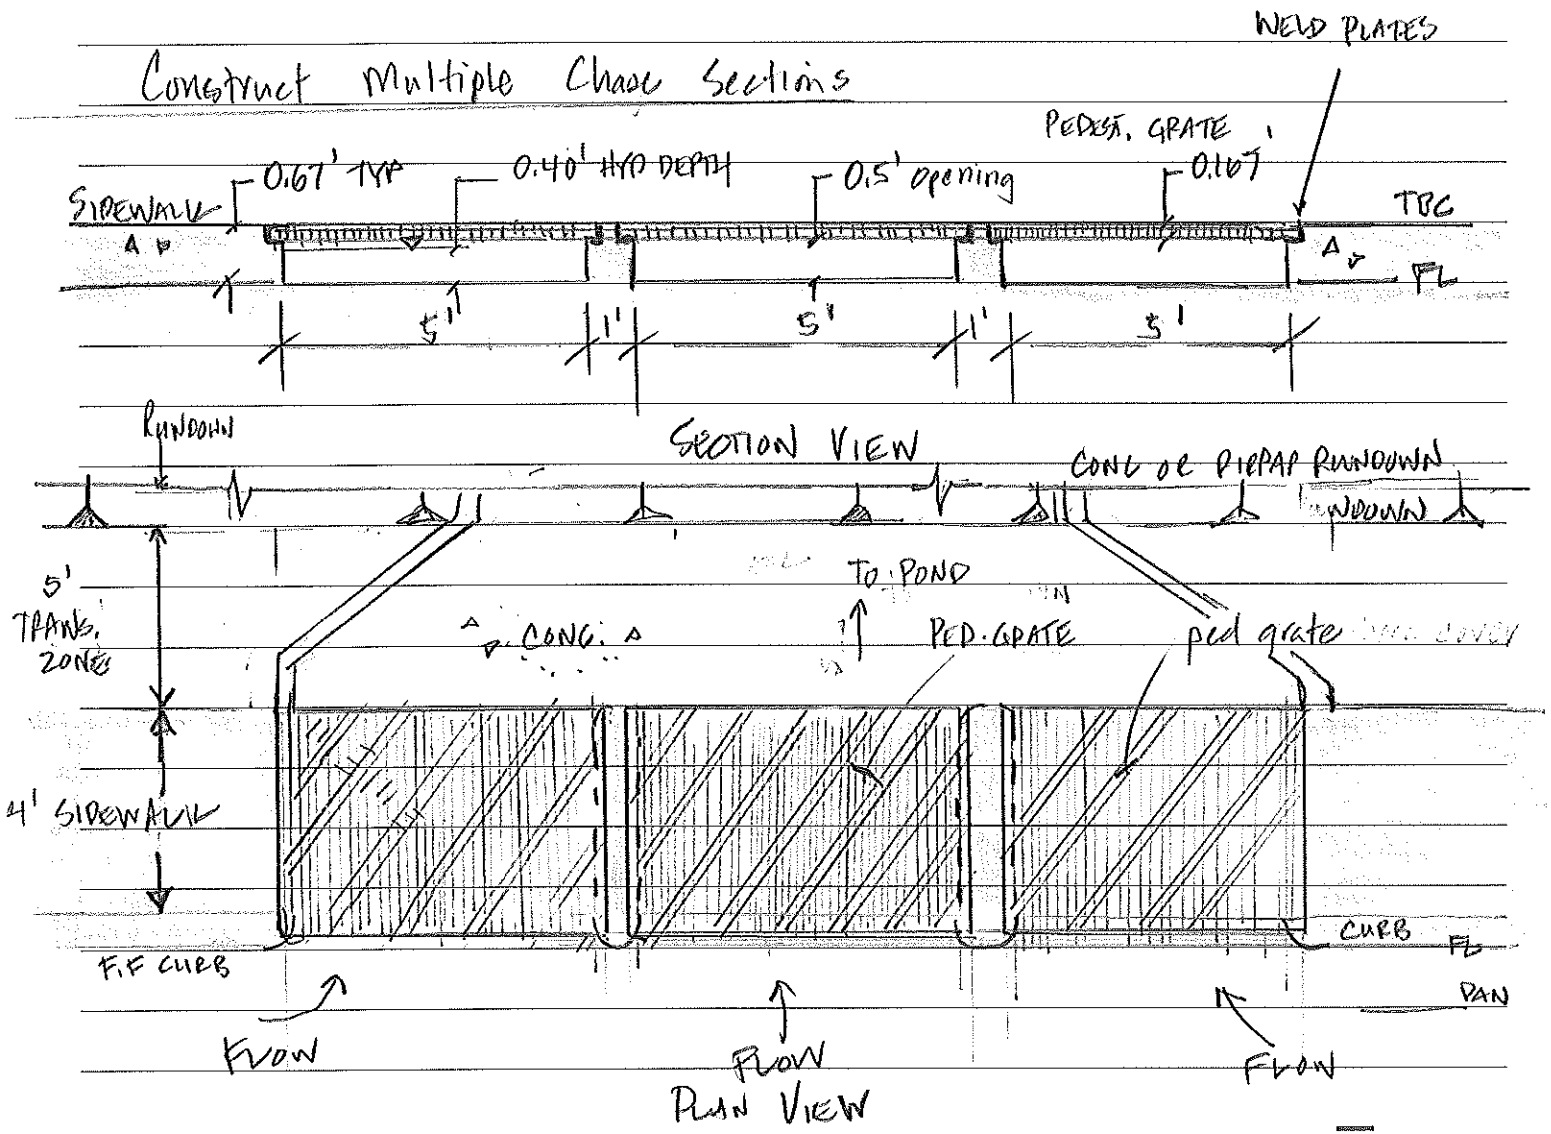 WELD PLATES
Construct Multiple Chase Sections
PEDEST. GRATE
0.67' TYP
0.40' HYD DEPTH
0.5' Opening
0.167'
SIDEWALK
TBC
FL
5'
1'
5'
1'
5'
RUNDOWN
SECTION VIEW
CONC OR RIPRAP RUNDOWN
NDOWN
5'
TRANS.
ZONE
TO POND
CONC.
PED. GRATE
ped grate
cover
4' SIDEWALK
F.F CURB
CURB
FL
PAN
FLOW
FLOW
FLOW
PLAN VIEW